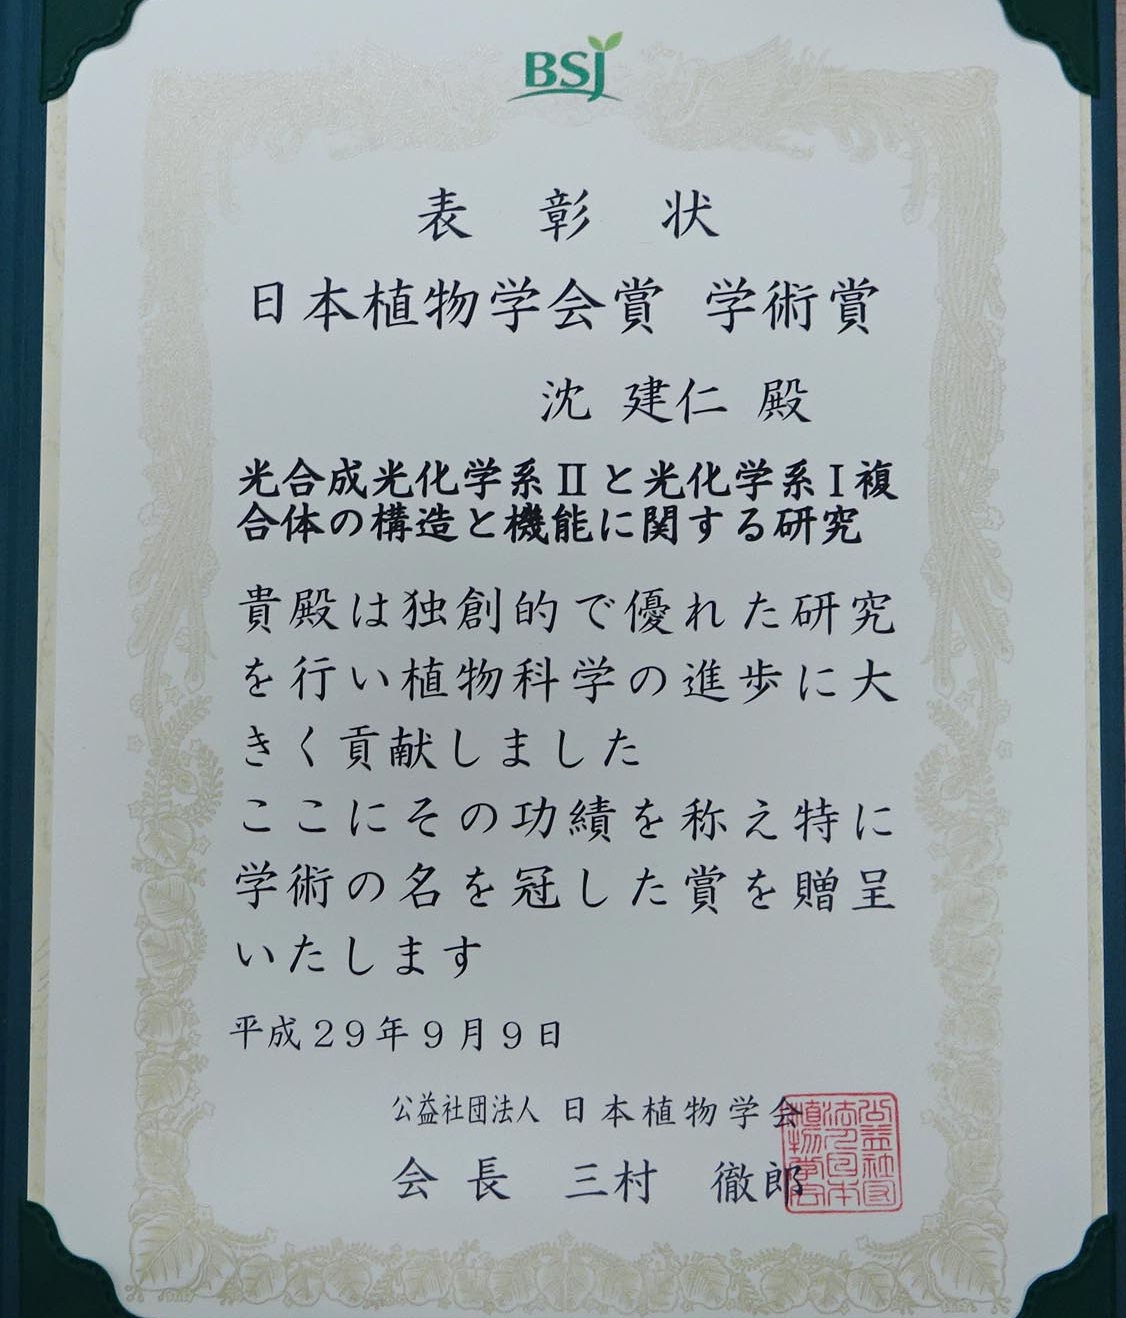 BSJ
表彰状
日本植物学会賞 学術賞
沈 建仁 殿
光合成光化学系Ⅱと光化学系Ⅰ複
合体の構造と機能に関する研究
貴殿は独創的で優れた研究
を行い植物科学の進歩に大
きく貢献しました
ここにその功績を称え特に
学術の名を冠した賞を贈呈
いたします
平成29年9月9日
公益社団法人 日本植物学会
会長 三村 徹郎